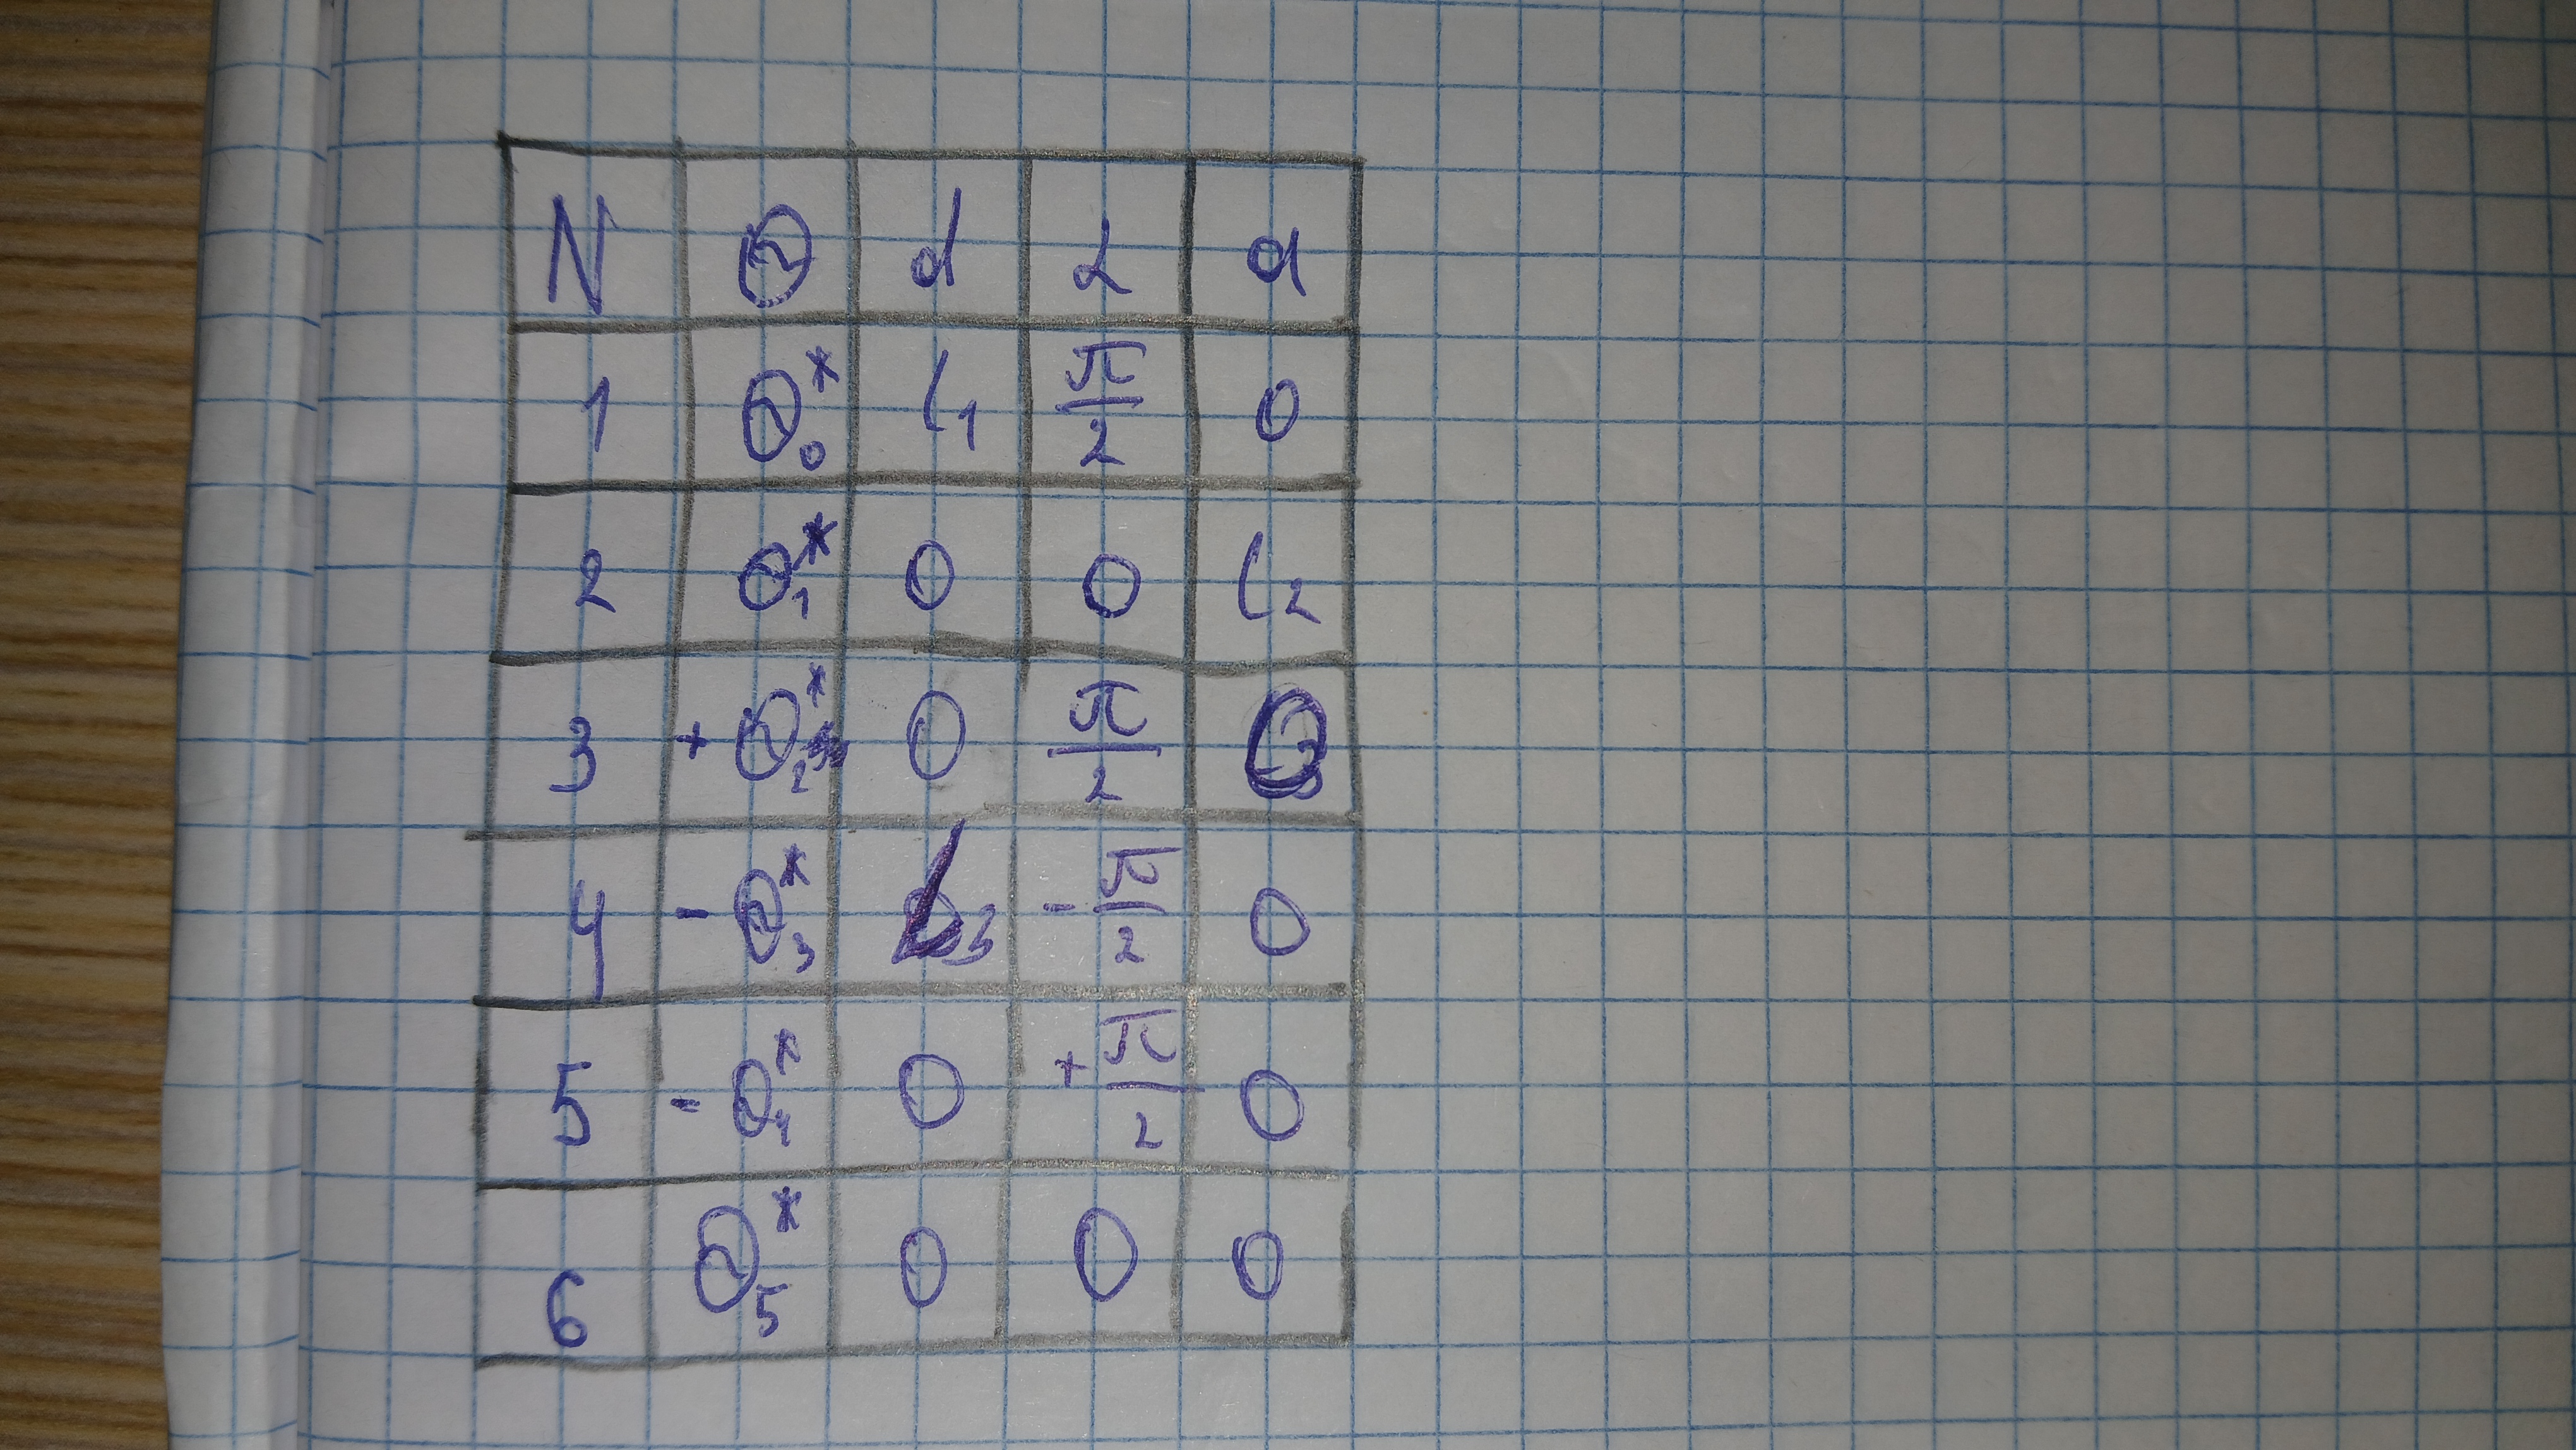 N Θ d α a
1 Θ₀* l₁ π/2 0
2 Θ₁* 0 0 l₂
3 +Θ₂* 0 π/2 0
4 -Θ₃* l₃ -π/2 0
5 -Θ₄* 0 +π/2 0
6 Θ₅* 0 0 0